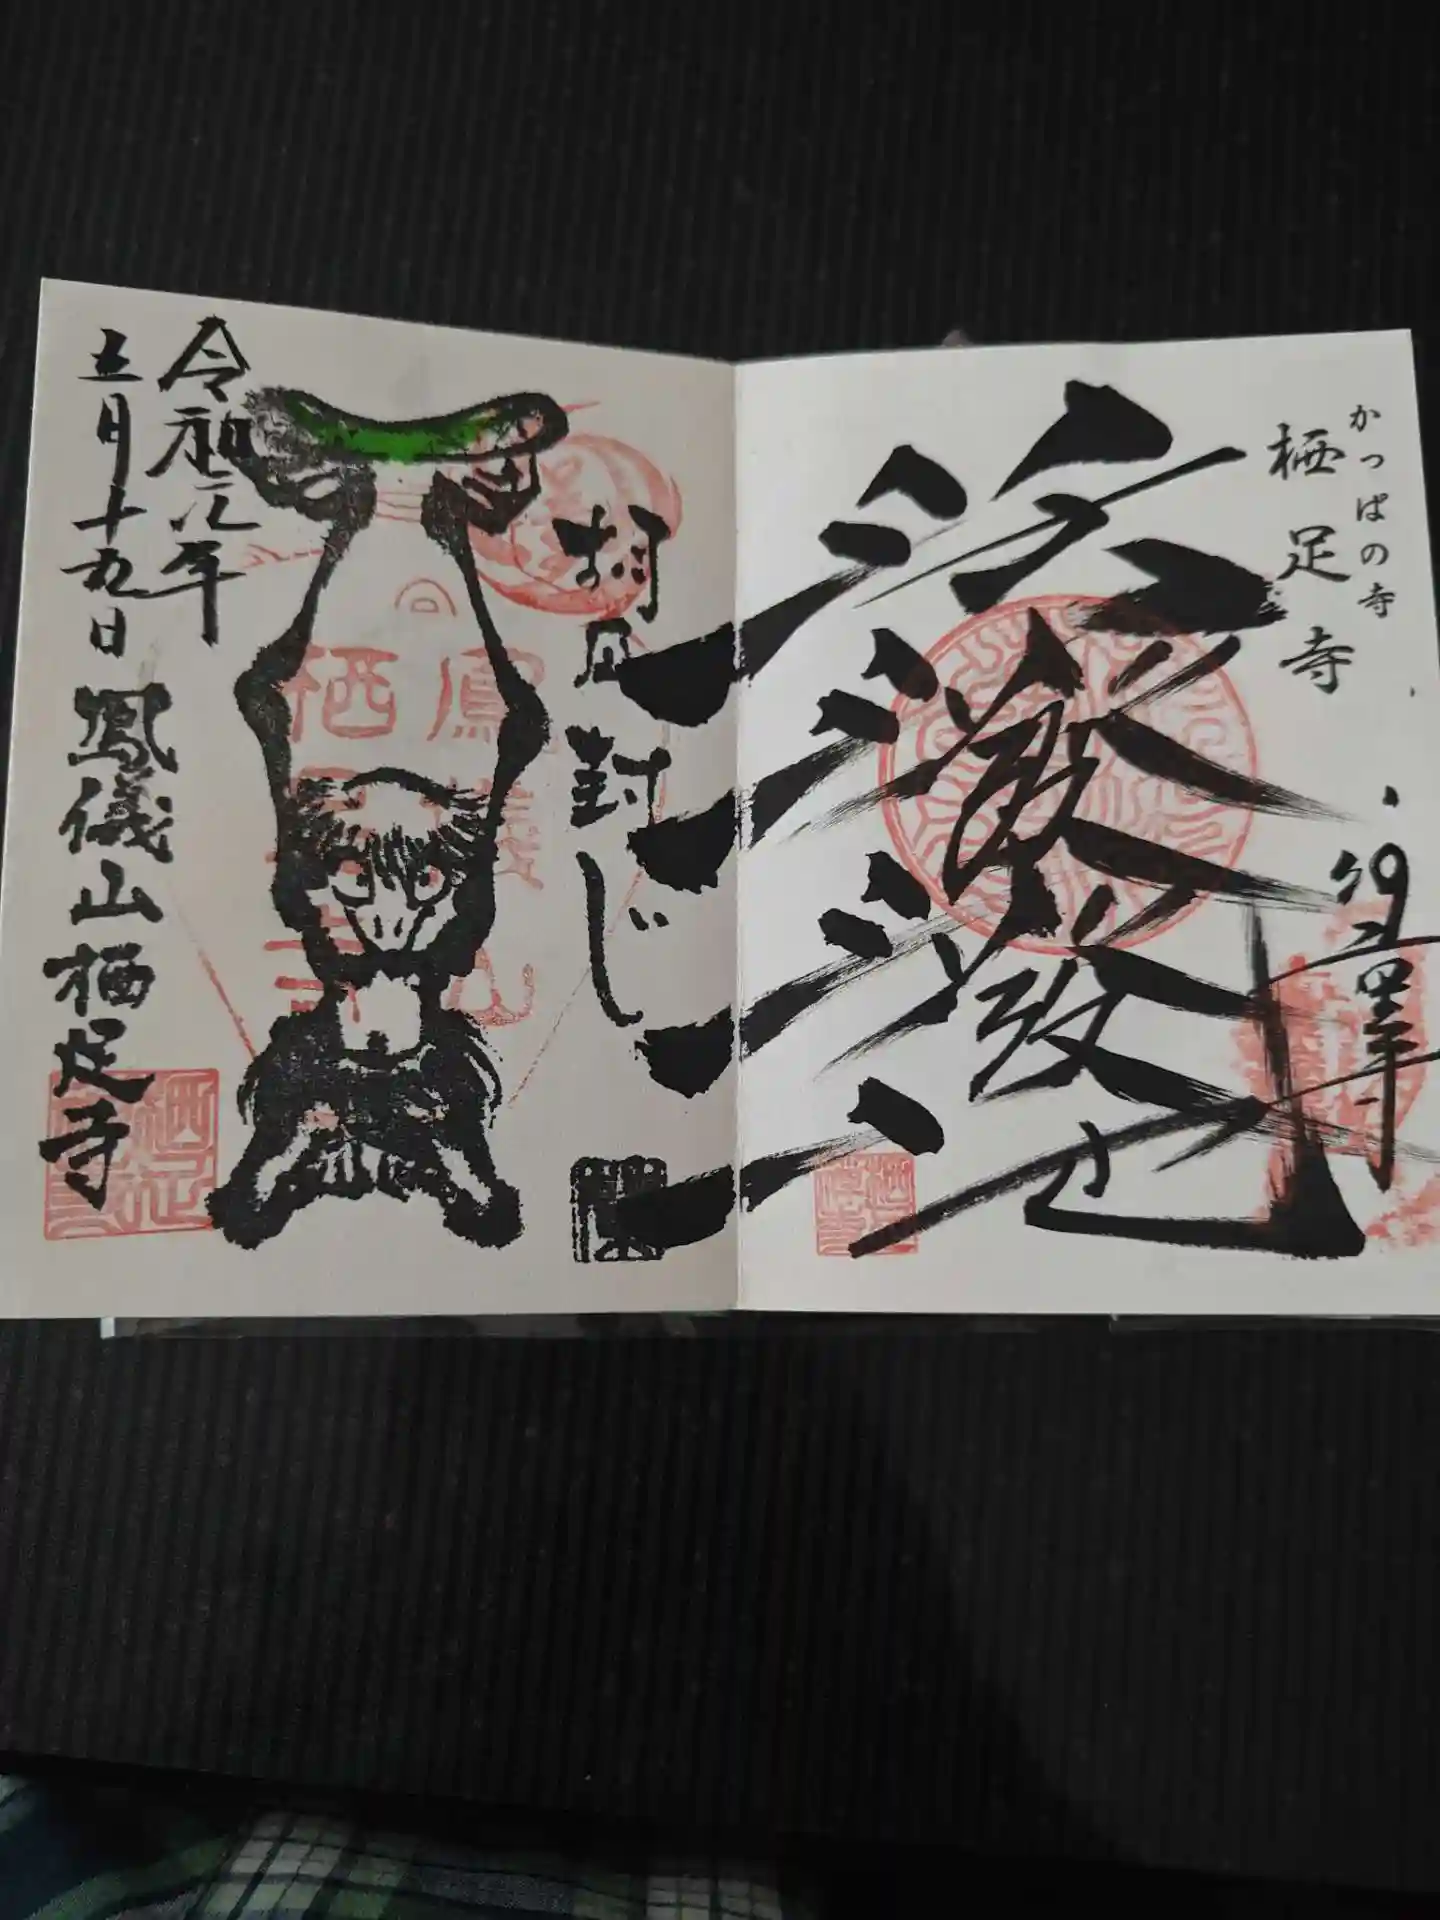 かっぱの寺
栖足寺
活潑潑地
胡瓜封じ
令和元年
五月十九日 鳳儀山栖足寺